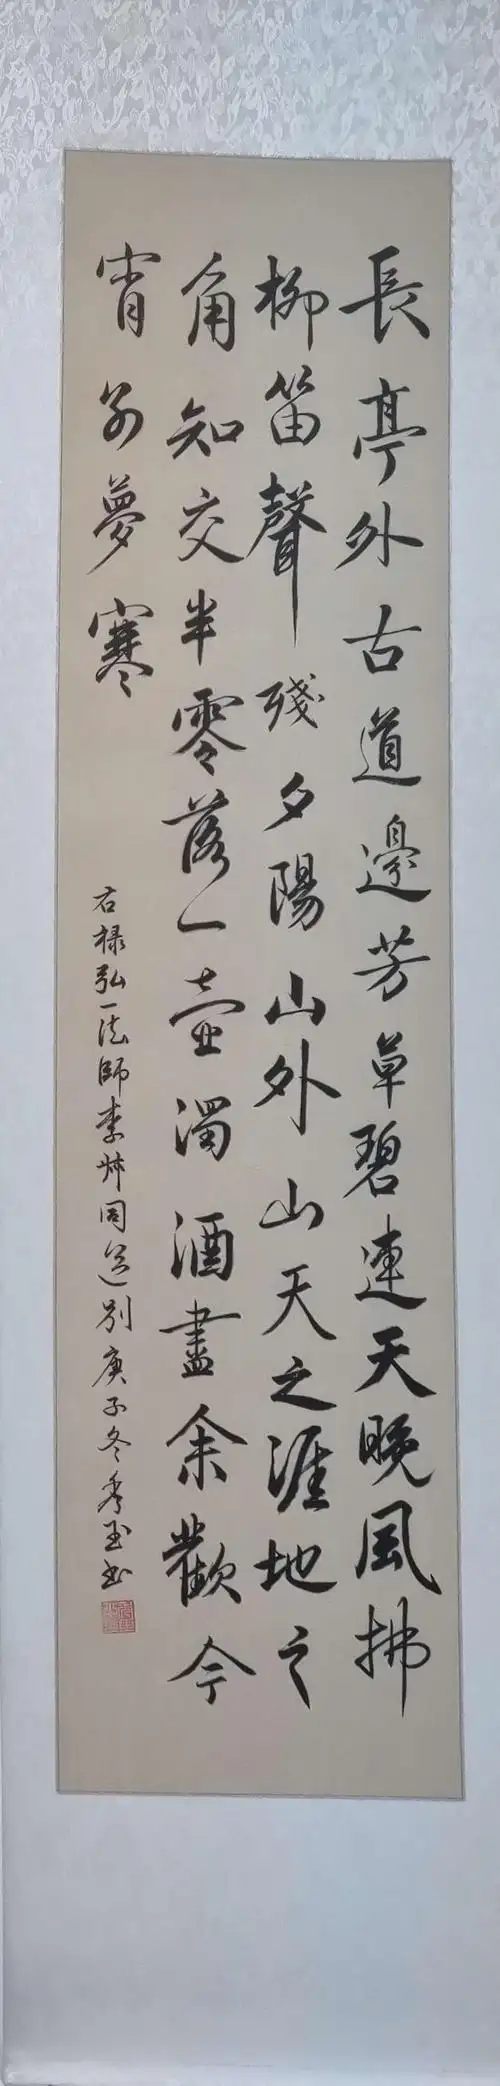 長亭外古道邊芳草碧連天晚風拂
柳笛聲殘夕陽山外山天之涯地之
角知交半零落一壺濁酒盡余歡今
宵别夢寒
右禄弘一法師李叔同送别庚子冬秀玉书